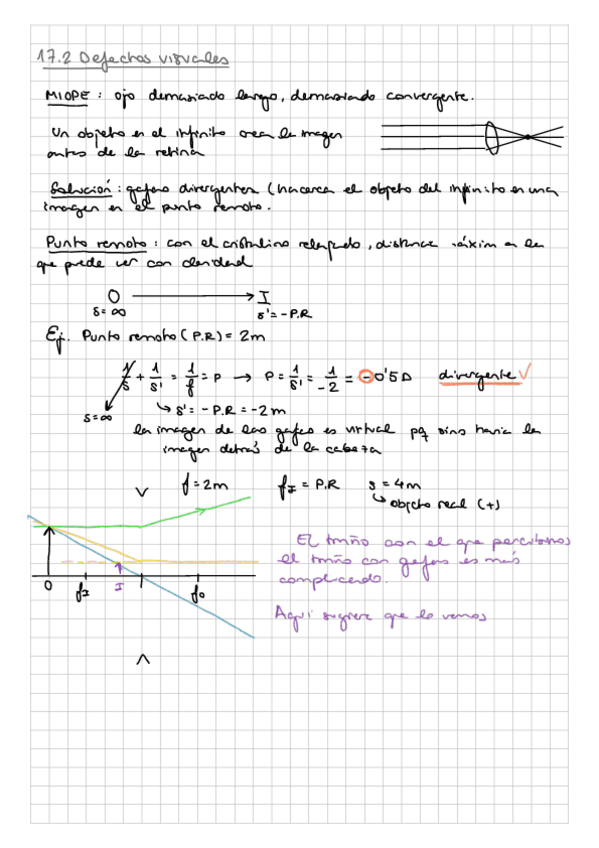 17.2 Defectos visuales
MIOPE: ojo demasiado largo, demasiado convergente.
Un objeto en el infinito crea la imagen
antes de la retina
Solución: gafas divergentes (hacerca el objeto del infinito en una
imagen en el punto remoto.
Punto remoto: con el cristalino relajado, distancia máxima en la
que puede ver con claridad
O → I
s=∞ s'=-P.R
Ej. Punto remoto (P.R) = 2m
1/s + 1/s' = 1/f = P → P = 1/s' = 1/-2 = -0'5 D divergente √
s=∞ ↳ s' = -P.R = -2m
la imagen de las gafas es virtual pq sino haria la
imagen detrás de la cabeza
f=2m f_I = P.R s=4m
↳ objeto real (+)
EL tmño con el que percibimos
el tmño con gafas es más
complicado.
Aquí sugiere que lo vemos
O f_I I f_o